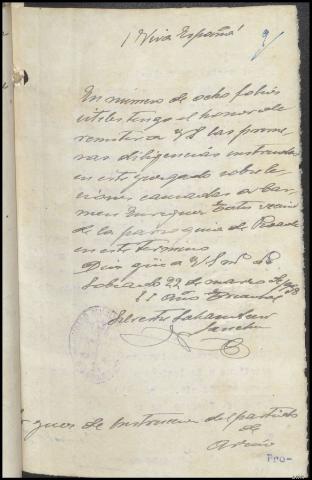 ¡Viva España!
9/
En número de ocho folios
útiles tengo el honor de
remitir a V.S. las prime-
ras diligencias instruidas
en este juzgado sobre le-
siones causadas a Car-
men Enriquez vecina
de la parroquia de
en este término
Dios güe a V.S. ms. as.
Sobrado 22 de marzo de 1938
II Año Triunfal
Silvestre
Sanchez
Juez de Instrucción del partido
de
Arzúa
Pro-